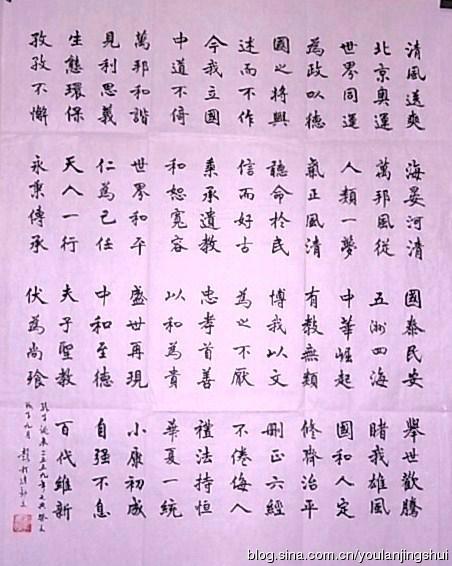 清風送爽 海晏河清 國泰民安 舉世歡騰
北京奧運 萬邦風從 五洲四海 睹我雄風
世界同運 人類一夢 中華崛起 國和人定
為政以德 氣正風清 有教無類 修齊治平
國之將興 聽命於民 博我以文 刪正六經
述而不作 信而好古 為之不厭 不倦侮人
今我立國 秉承道教 忠孝首善 禮法持恒
中道不倚 和恕寬容 以和為貴 華夏一統
萬邦和諧 世界和平 盛世再現 小康初成
見利思義 仁為己任 中和至德 自强不息
生態環保 天人一行 夫子聖教 百代維新
孜孜不懈 永秉傳承 伏為尚飨
孔子誕辰二五五九年大典祭文
戊子九月
blog.sina.com.cn/youlanjingshui